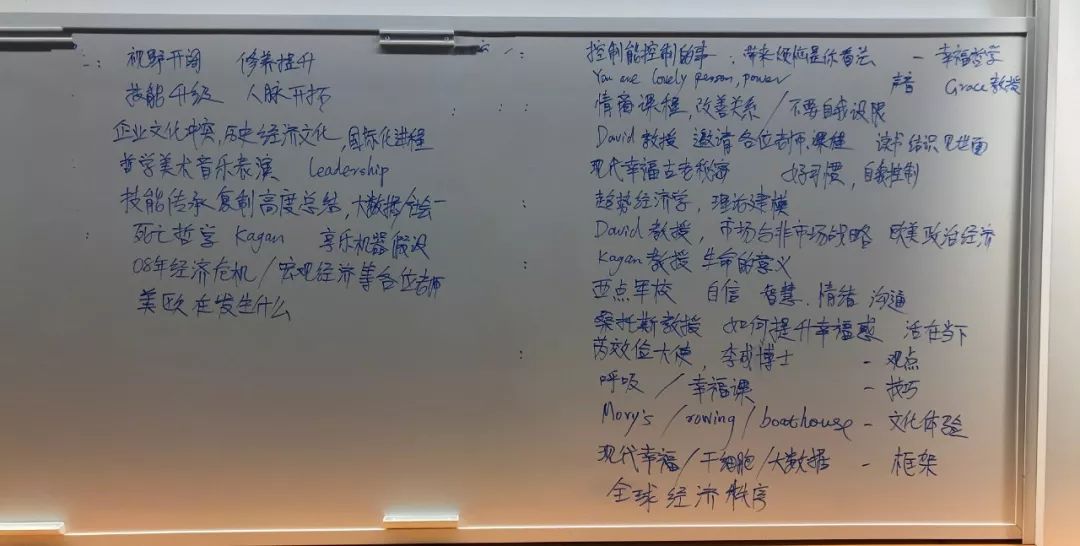 视野开阔 修养提升
技能升级 人脉开拓
企业文化冲突,历史经济文化,国际化进程
哲学美术音乐表演 Leadership
技能传承 复制高度总结,大数据
死亡哲学 Kagan 享乐机器假设
08年经济危机/宏观经济等各位老师
美欧在发生什么
控制能控制的事.带来烦恼是你看法 - 幸福哲学
You are lovely person, power 声音 Grace教授
情商课程,改善关系/不要自我设限
David教授 邀请各位老师.课程 读书结识见世面
现代幸福古老秘密 好习惯,自我控制
趋势经济学,理论建模
David教授,市场与非市场战略 欧美政治经济
Kagan教授 生命的意义
西点军校 自信 智慧.情绪 沟通
桑托斯教授 如何提升幸福感 活在当下
芮效俭大使,李成博士 - 观点
呼吸/幸福课 - 技巧
Mory's/rowing/boathouse - 文化体验
现代幸福/干细胞/大数据 - 框架
全球经济秩序